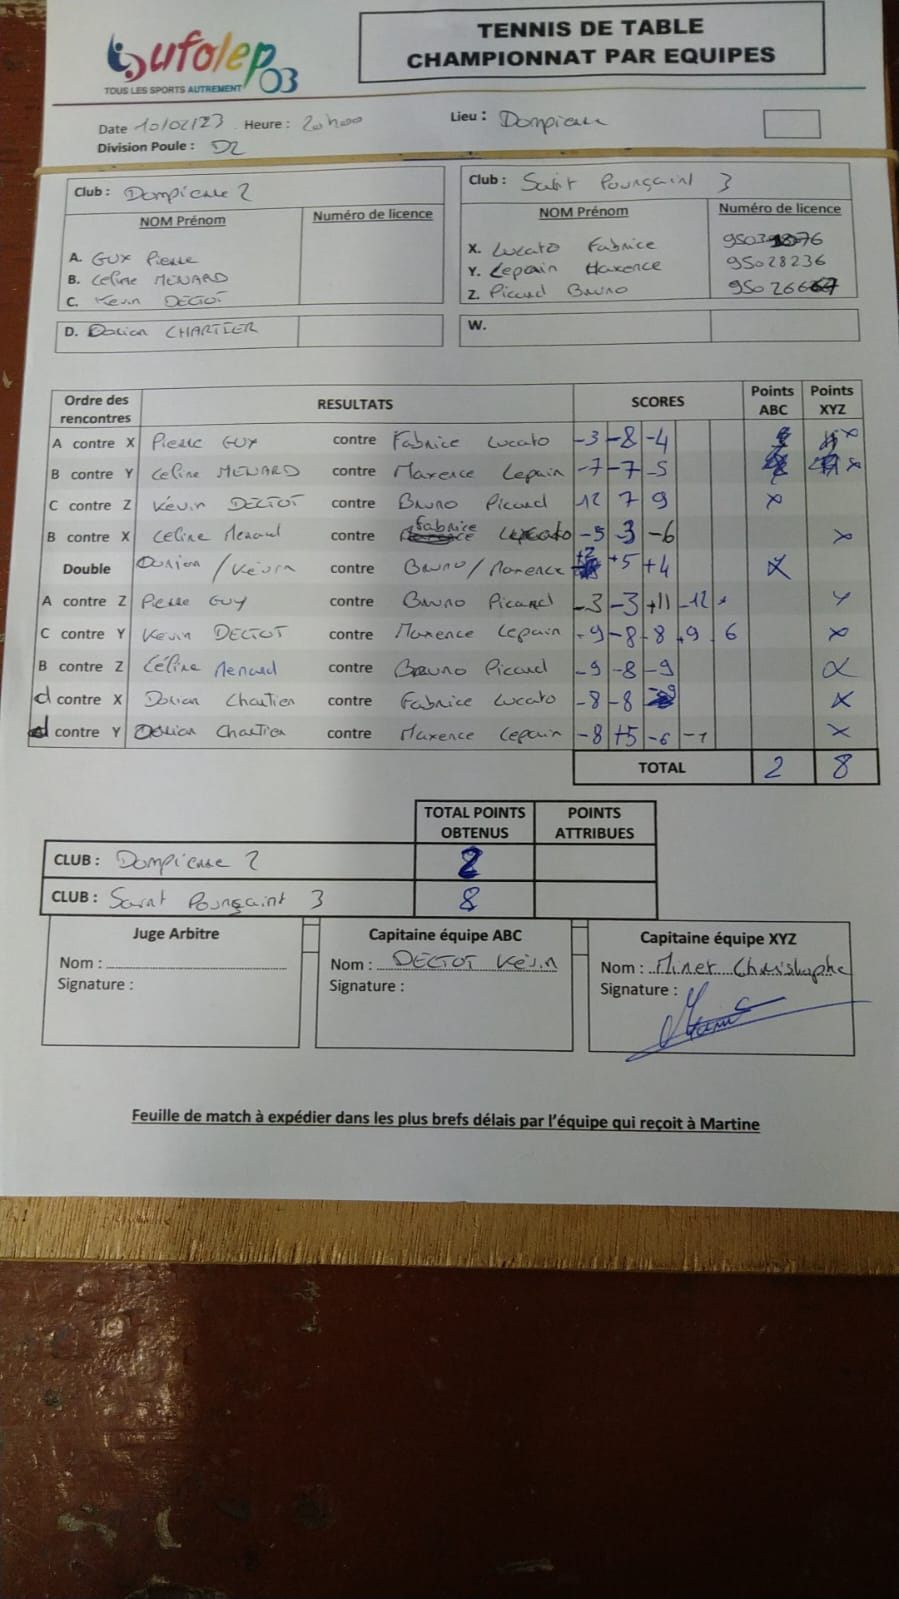 ufolep 03
TOUS LES SPORTS AUTREMENT
TENNIS DE TABLE
CHAMPIONNAT PAR EQUIPES
Date 10/02/23 Heure : 20h00 Lieu : Dompierre
Division Poule : D2
Club : Dompierre 2
NOM Prénom Numéro de licence
A. GUY Pierre
B. Céline MENARD
C. Kévin DECTOT
D. Dorian CHARTIER
Club : Saint Pourçaint 3
NOM Prénom Numéro de licence
X. Lucato Fabrice
Y. Lepain Maxence 95028236
Z. Picard Bruno
W.
Ordre des rencontres RESULTATS SCORES Points ABC Points XYZ
A contre X Pierre GUY contre Fabrice Lucato -3 -8 -4 x
B contre Y Céline MENARD contre Maxence Lepain -7 -7 -5 x
C contre Z Kévin DECTOT contre Bruno Picard 12 7 9 x
B contre X Céline Menard contre Fabrice Lucato -5 -3 -6 x
Double Dorian / Kévin contre Bruno / Maxence +5 +4 x
A contre Z Pierre GUY contre Bruno Picard -3 -3 +11 -12 x
C contre Y Kevin DECTOT contre Maxence Lepain -9 -8 8 9 6 x
B contre Z Céline Menard contre Bruno Picard -9 -8 -9 x
d contre X Dorian Chartier contre Fabrice Lucato -8 -8 x
d contre Y Dorian Chartier contre Maxence Lepain -8 +5 -6 -7 x
TOTAL 2 8
TOTAL POINTS OBTENUS POINTS ATTRIBUES
CLUB : Dompierre 2 2
CLUB : Saint Pourçaint 3 8
Juge Arbitre
Nom :
Signature :
Capitaine équipe ABC
Nom : DECTOT Kévin
Signature :
Capitaine équipe XYZ
Nom : Minet Christophe
Signature :
Feuille de match à expédier dans les plus brefs délais par l'équipe qui reçoit à Martine